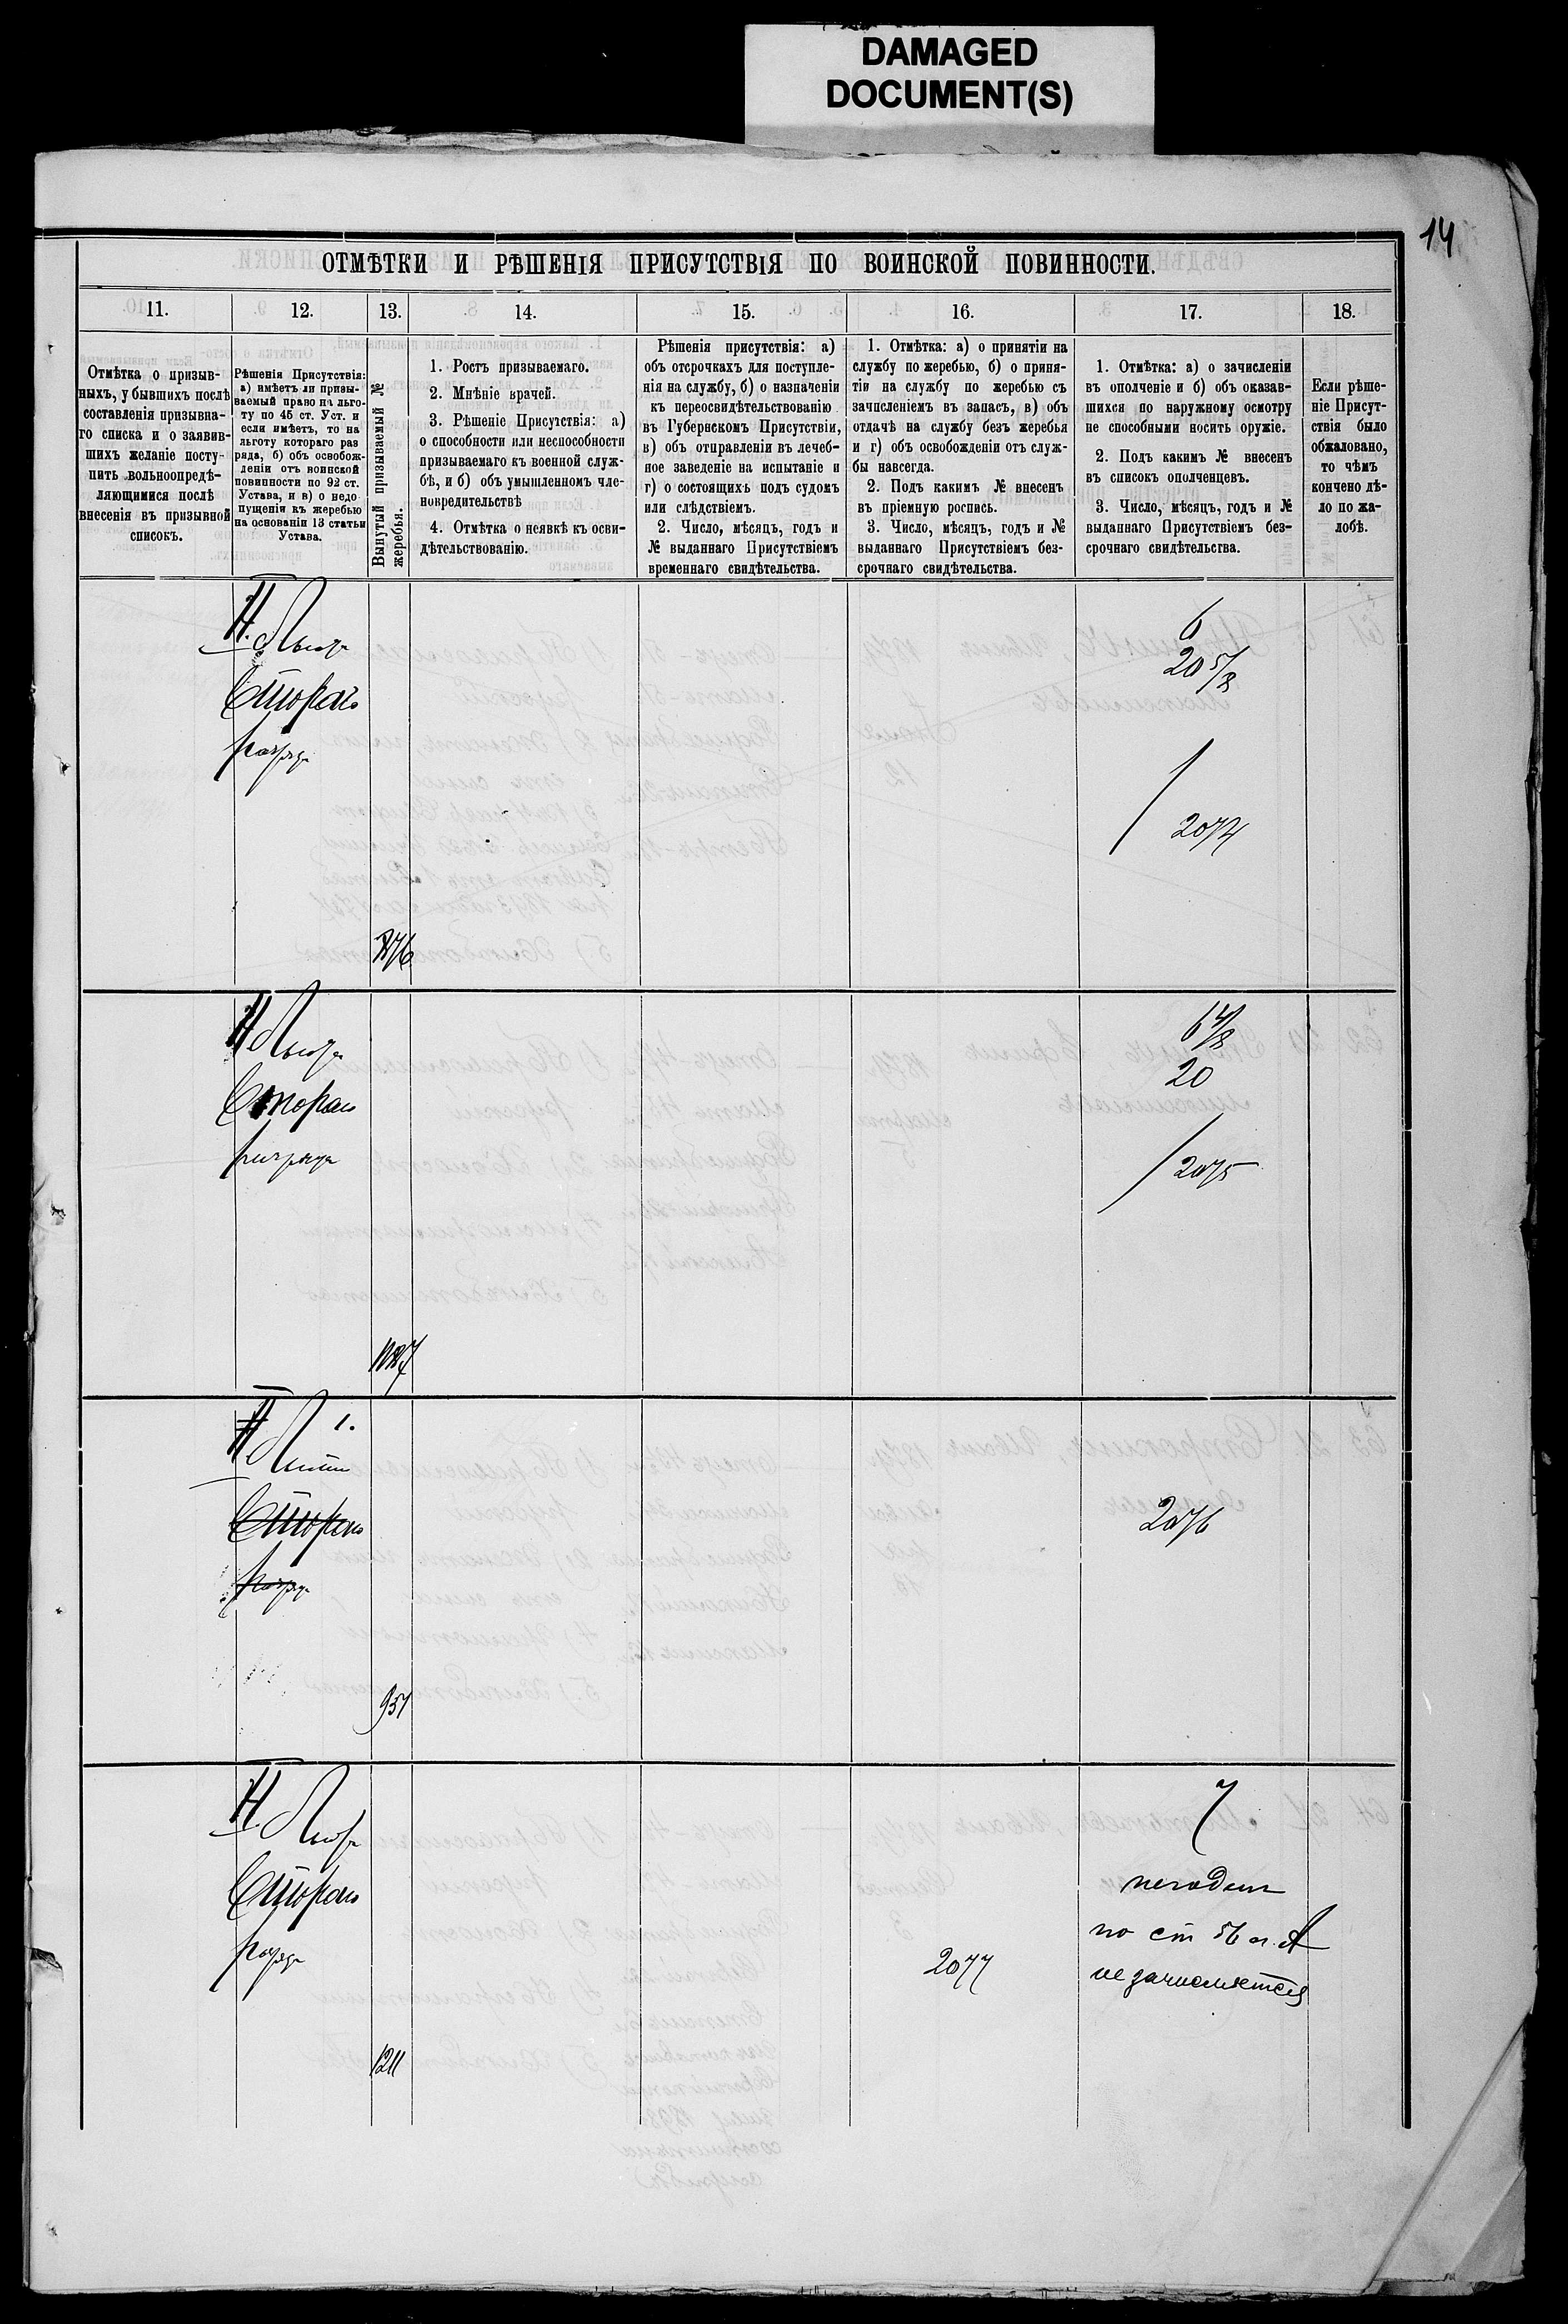 DAMAGED
DOCUMENT(S)
14
ОТМѢТКИ И РѢШЕНІЯ ПРИСУТСТВІЯ ПО ВОИНСКОЙ ПОВИННОСТИ.
11.
12.
13.
14.
15.
16.
17.
18.
Отмѣтка о призыв-
ныхъ, у бывшихъ послѣ
составленія призывна-
го списка и о заявив-
шихъ желаніе посту-
пить вольноопредѣ-
ляющимися послѣ
внесенія въ призывной
списокъ.
Рѣшенія Присутствія:
а) имѣетъ ли призы-
ваемый право на льго-
ту по 45 ст. Уст. и
если имѣетъ, то на
льготу котораго раз
ряда, б) объ освобож-
деніи отъ воинской
повинности по 92 ст.
Устава, и в) о недо
пущеніи къ жеребью
на основаніи 13 статьи
Устава.
Вынутый призываемый №
жеребья.
1. Ростъ призываемаго.
2. Мнѣніе врачей.
3. Рѣшеніе Присутствія: а)
о способности или неспособности
призываемаго къ военной служ-
бѣ, и б) объ умышленномъ чле-
новредительствѣ
4. Отмѣтка о неявкѣ къ осви-
дѣтельствованію.
Рѣшенія присутствія: а)
объ отсрочкахъ для поступле-
нія на службу, б) о назначеніи
къ переосвидѣтельствованію
въ Губернскомъ Присутствіи,
в) объ отправленіи въ лечеб-
ное заведеніе на испытаніе и
г) о состоящихъ подъ судомъ
или слѣдствіемъ.
2. Число, мѣсяцъ, годъ и
№ выданнаго Присутствіемъ
временнаго свидѣтельства.
1. Отмѣтка: а) о принятіи на
службу по жеребью, б) о приня-
тіи на службу по жеребью съ
зачисленіемъ въ запасъ, в) объ
отдачѣ на службу безъ жеребья
и г) объ освобожденіи отъ служ-
бы навсегда.
2. Подъ какимъ № внесенъ
въ пріемную роспись.
3. Число, мѣсяцъ, годъ и №
выданнаго Присутствіемъ без-
срочнаго свидѣтельства.
1. Отмѣтка: а) о зачисленіи
въ ополченіе и б) объ оказав-
шихся по наружному осмотру
не способными носить оружіе.
2. Подъ какимъ № внесенъ
въ списокъ ополченцевъ.
3. Число, мѣсяцъ, годъ и №
выданнаго Присутствіемъ без-
срочнаго свидѣтельсгва.
Если рѣше-
ніе Присут-
ствія было
обжаловано,
то чѣмъ
кончено дѣ-
ло по жа-
лобѣ.
II. Льгота
Втораго
разряда
6
20 5/8
2074
II Льгота
Втораго
разряда
6 4/8
20
2075
II 1.
Втораго
разряда
2076
951
II. Льгота
Втораго
разряда
1211
2077
7
негоденъ
по ст 56 л. А
не зачисляется